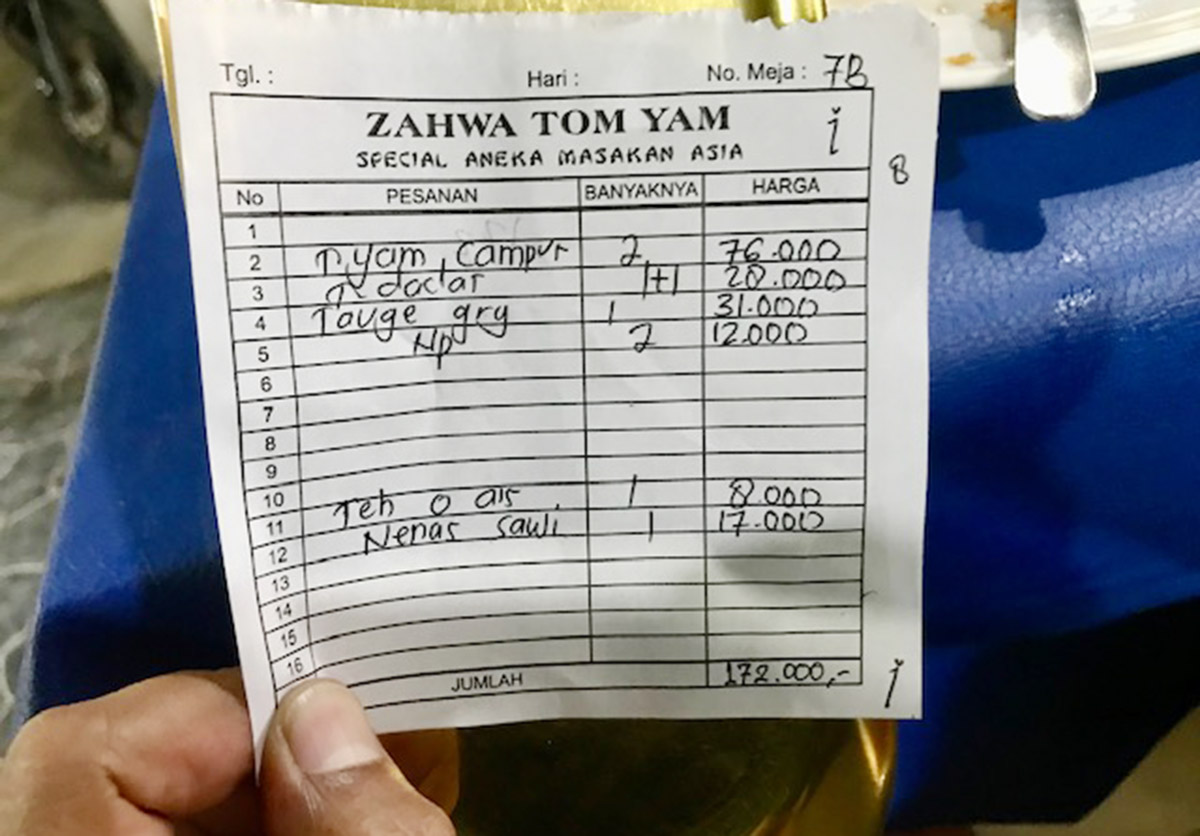 Tgl. : Hari : No. Meja : 7B
ZAHWA TOM YAM i
SPECIAL ANEKA MASAKAN ASIA
8
No PESANAN BANYAKNYA HARGA
1
2 T.yam campur 2 76.000
3 dadar 1+1 28.000
4 Tauge grg 1 31.000
5 Np 2 12.000
6
7
8
9
10 Teh o ais 1 8.000
11 Nenas sawi 1 17.000
12
13
14
15
16
JUMLAH 172.000,-